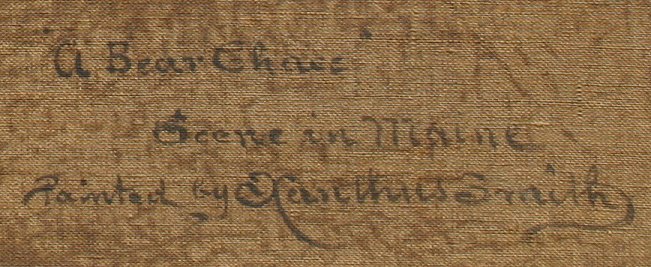 "A Bear Chase"
Scene in Maine
Painted by Xanthus Smith